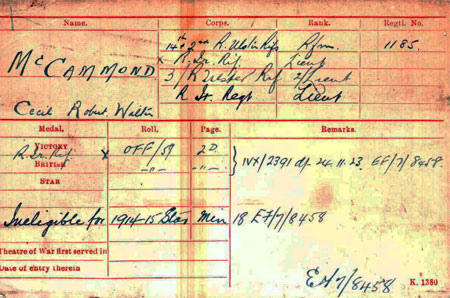 Corps. Rank. Regtl. No.
14th 2nd R. Ulster Rifs Rfm. 1185.
McCAMMOND x R. Ir. Rif. Lieut
3/ R Ulster Rif 2/Lieut
Cecil Robert Walter R Ir. Regt Lieut
Medal. Roll. Page. Remarks.
VICTORY
R. Ir. Rif. x OFF/59 20
BRITISH -"- -"- } IVX/2391 df 24.11.23. EF/7/8458.
STAR
Ineligible for 1914-15 Star Men 18 EF/7/8458
Theatre of War first served in
Date of entry therein
EF/7/8458 K. 1380